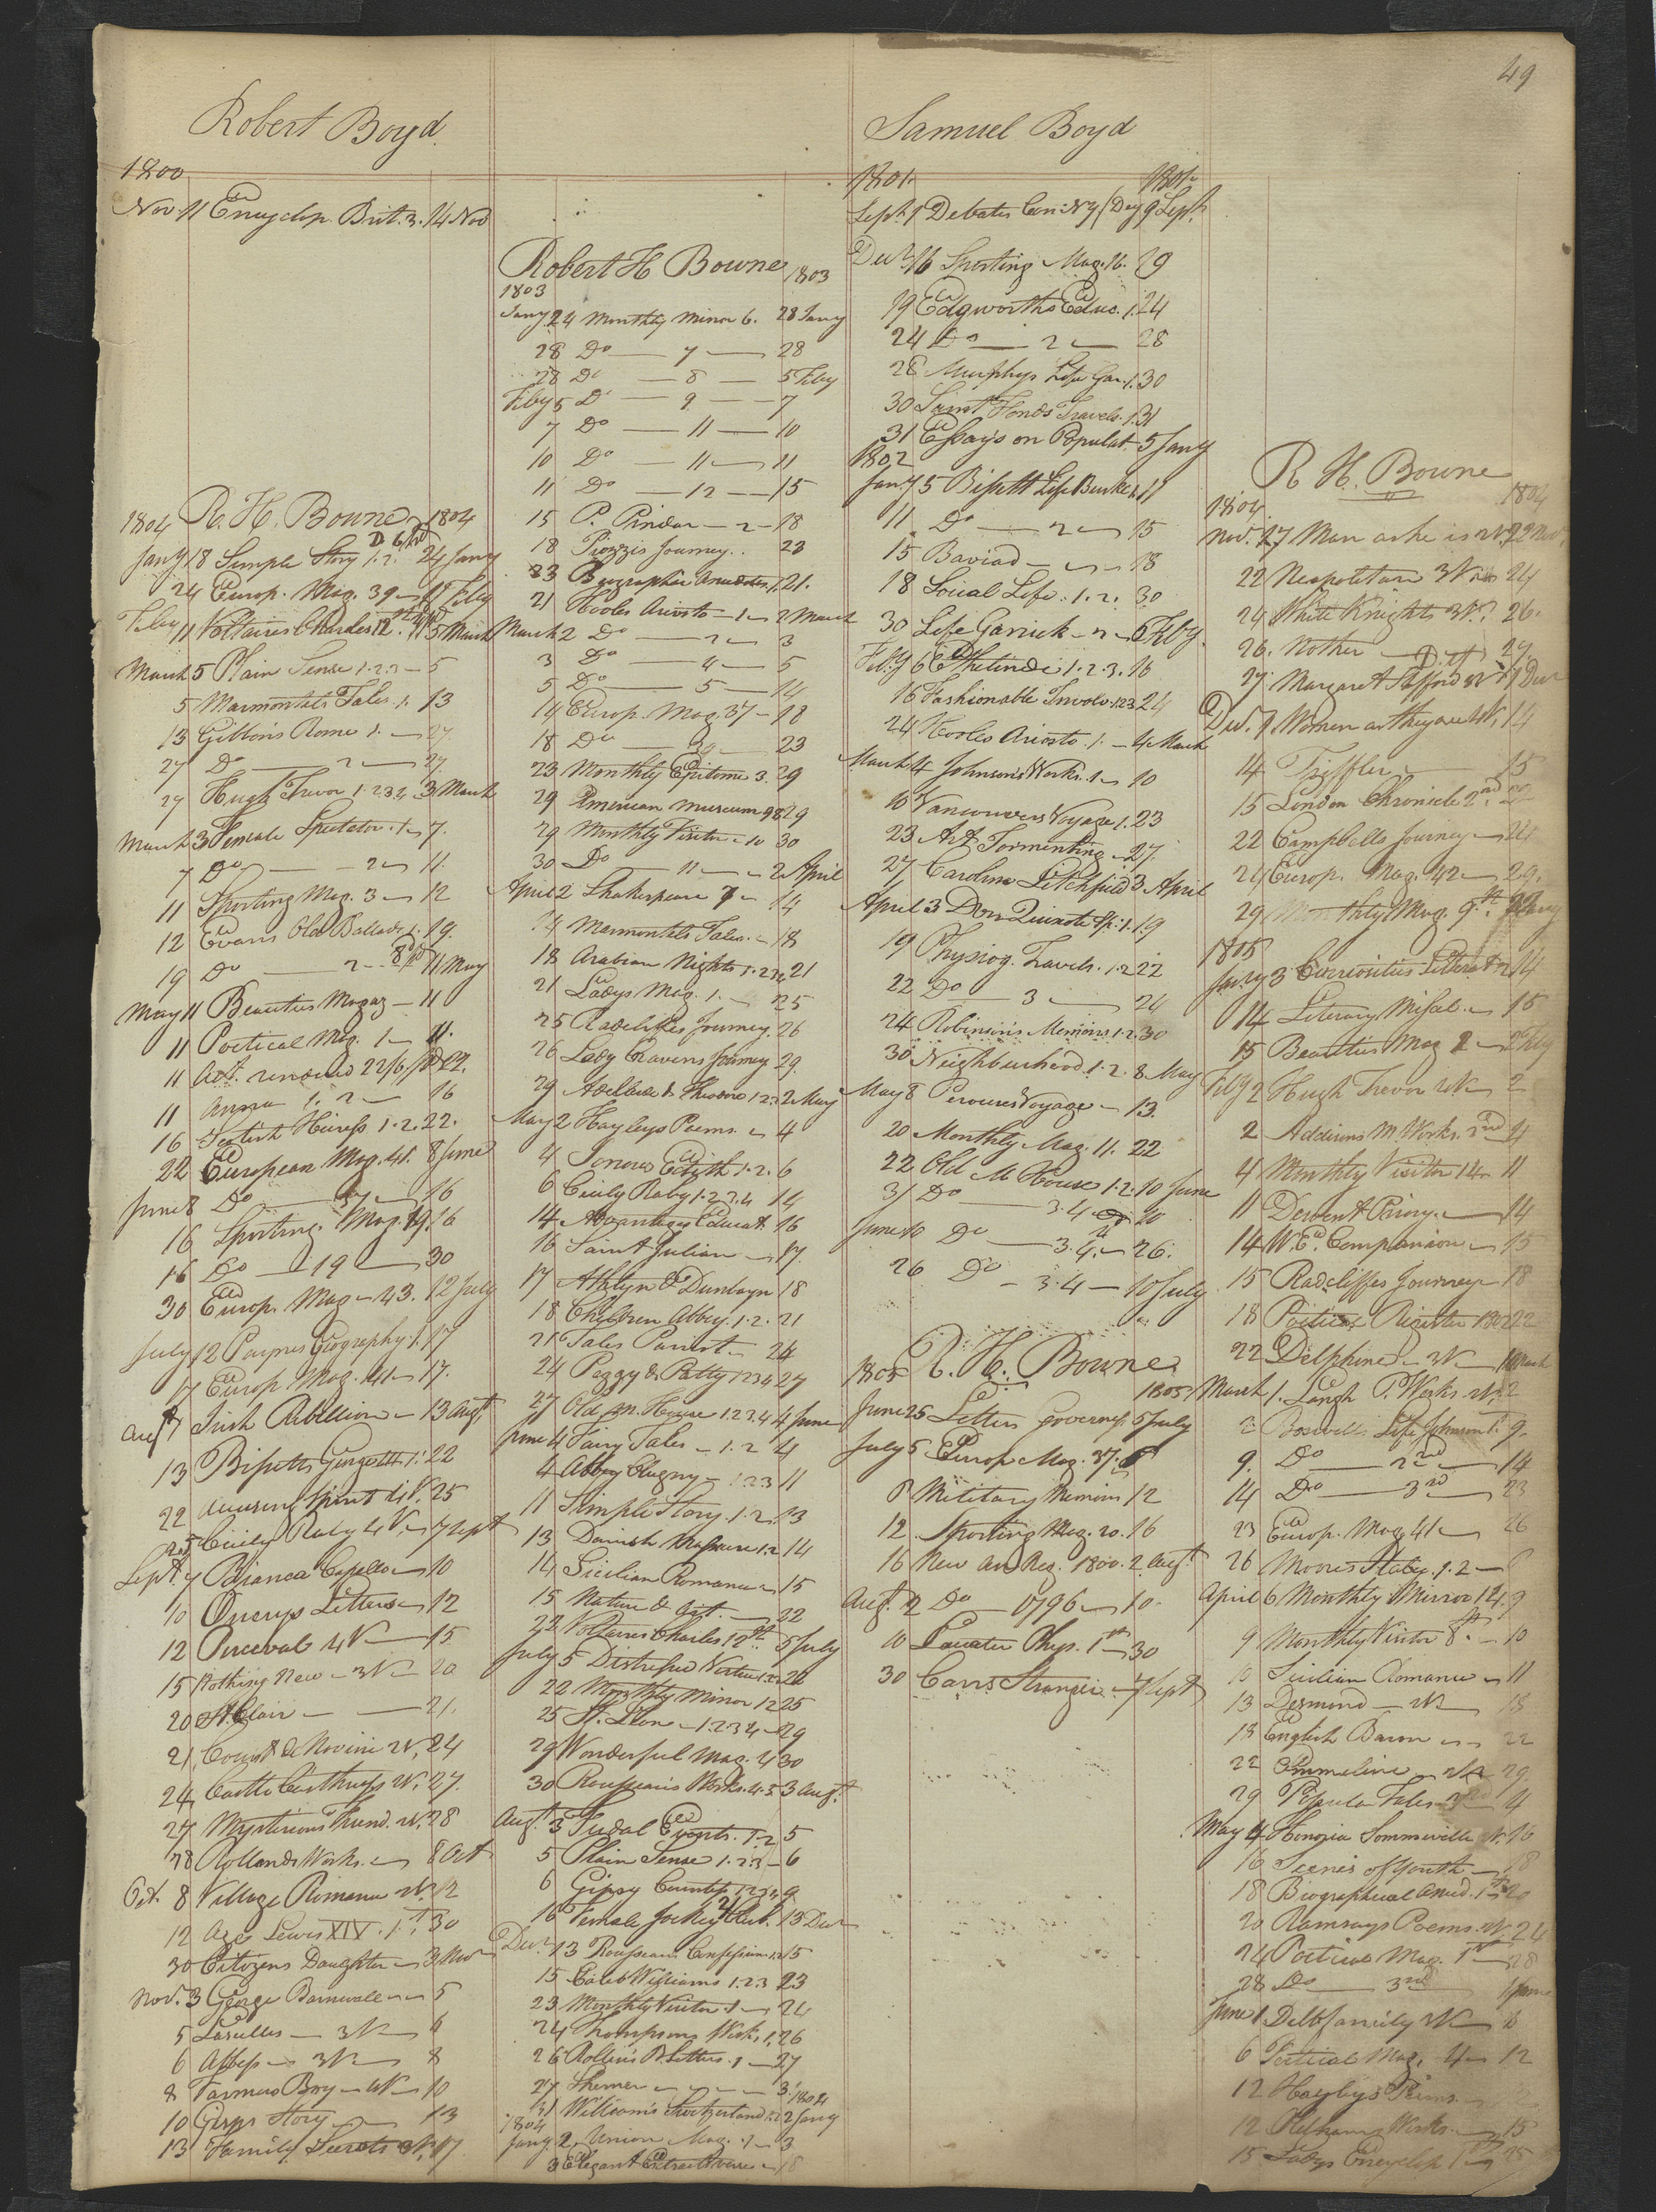 49
Robert Boyd
1800
Nov 11 Encyclop. Brit. 3. 14 Nov
1804 R. H. Bowne 1804
Jany 18 Simple Story 1.2. 24 Jany
24 Europ. Mag. 39 11 Feby
Feby 11 Voltaires Charles 12. 5 March
March 5 Plain Sense 1.2.3 5
5 Marmontels Tales 1. 13
13 Gibbons Rome 1. 27
27 Do 2 27
27 Hugh Trevor 1.2.3.4 3 March
March 3 Female Spectator 1 7.
7 Do 2 11.
11 Sporting Mag. 3 12
12 Evans Old Ballads 1. 19.
19 Do 2 11 May
May 11 Beauties Magaz 11
11 Poetical Mag. 1 11.
11 Act. renewed 22/6 pd 22.
11 Anna 1.2 16
16 Scotish Heiress 1.2. 22.
22 European Mag. 41. 8 June
June 8 Do 37 16
16 Sporting Mag. 19. 16
16 Do 19 30
30 Europ. Mag 43. 12 July
July 12 Paynes Geography 1. 17
17 Europ Mag. 41 17.
Augt 7 Irish Rebellion 13 Augt
13 Bissetts George III 1. 22
22 Amusing Spirit 4 V. 25
25 Cicily Raby 4 V. 7 Sept
Sept. 7 Bianca Capello 10
10 Orrerys Letters 12
12 Perceval 4 V 15
15 Nothing New 3 V 20
20 St. Clair 21.
21 Count de Novini 2 V. 24
24 Castle 2 V. 27.
27 Mysterious Friend. 2 V. 28
28 Rollands Works. 8 Oct
Oct. 8 Village Romance 2 V. 12
12 Age Lewis XIV. 1st. 30
30 Citizens Daughter 3 Nov
Nov. 3 George Barnwell 5
5 Lascelles 3 V 6
6 Abbess 3 V 8
8 Farmers Boy 4 V 10
10 Gipsy Story 13
13 Family Secrets 17
Robert H Bowne 1803
1803
Jany 24 Monthly Mirror 6. 28 Jany
28 Do 7 28
28 Do 8 5 Feby
Feby 5 Do 9 7
7 Do 11 10
10 Do 11 11
11 Do 12 15
15 P. Pindar 2 18
18 Piozzis Journey. 23
23 Biographia Anecdotes 1. 21.
21 Hooles Ariosto 1 2 March
March 2 Do 2 3
3 Do 4 5
5 Do 5 14
14 Europ. Mag. 37 18
18 Do 39 23
23 Monthly Epitome 3. 29
29 American Museum 98 29
29 Monthly Visitor 10 30
30 Do 11 2 April
April 2 Shakespeare 7 14
14 Marmontels Tales. 18
18 Arabian Nights 1.2.3.4 21
21 Ladys Mag. 1. 25
25 Radcliffes Journey. 26
26 Lady Cravens Journey 29.
29 Adelaide & Theodore 1.2.3 2 May
May 2 Hayleys Poems. 4
4 Edith 1.2. 6
6 Cicily Raby 1.2.3.4 14
14 Advantages Educat. 16
16 Saint Julian 17.
17 Athlyn & Dunbayn 18
18 Children Abbey. 1.2. 21
21 Tales Parrot. 24
24 Peggy & Patty 1 2 3 4 27
27 Old M. House 1.2.3.4 4 June
June 4 Fairy Tales 1.2 4
4 Abbey Clugny 1.2.3 11
11 Simple Story. 1.2. 13
13 Danish Massacre 1.2 14
14 Sicilian Romance 15
15 Nature & Art. 22
22 Voltaires Charles 12th. 5 July
July 5 Distressed Virtue 1.2.3 22
22 Monthly Mirror 12 25
25 St. Leon 1 2 3 4 29
29 Wonderful Mag. 4 30
30 Rousseau's Works. 4.5. 3 Augt.
Augt. 3 Feudal Events. 1.2 5
5 Plain Sense 1.2.3 6
6 Gipsy Countess 1.2.3.4 9
16 Female Jockey Club. 13 Decr
Decr. 13 Rousseaus Confessions 1.2 15
15 Caleb Williams 1.2.3 23
23 Monthly Visitor 1 24
24 Thompsons Works 1. 26
26 Rollins B. Letters. 1 27
27 31
1804
31 Williams's Switzerland 1.2 2 Jany
1804
Jany 2, Union Mag. 1 3
3 Elegant Extracts verse 18
Samuel Boyd
1801. 1801
Sept. 1 Debates Con: NY 9 Sept.
Decr. 16 Sporting Mag. 16. 19
19 Edgworths Educ. 1. 24
24 Do 2 28
28 Murphys Life Gar. 1. 30
30 Saint Fonds Travels. 1. 31
31 Essays on Populat. 5 Jany
1802
Jany 5 Bissett Life Burke 1. 11
11 Do 2 15
15 Baviad 18
18 Social Life. 1.2. 30
30 Life Garrick 2 6 Feby.
Feby 6 Ethelinde 1.2.3. 16
16 Fashionable Involv. 1.2.3 24
24 Hooles Ariosto 1. 4 March
March 4 Johnson's Works. 1 10
10 Vancouvers Voyage 1. 23
23 Art Tormenting 27.
27 Caroline Litchfield 3 April
April 3 Don Quixote Sp: 1. 19
19 Physiog. Travels. 1.2 22
22 Do 3 24
24 Robinson's Memoirs 1.2. 30
30 Neighbourhood 1.2. 8 May
May 8 Perouses Voyage 13.
20 Monthly Mag. 11. 22
22 Old M House 1.2. 10 June
31 Do 3.4. 10
June 10 Do 3.4. 26.
26 Do 3.4 10 July
1805 R. H. Bowne
1805
June 25 Letters Governess 5 July
July 5. Europ Mag. 37. 8
8 Military Memoirs 12
12. Sporting Mag. 20. 16
16 New An. Reg. 1800. 2 Augt.
Augt. 2 Do 1796 10.
10 Lavater Phys. 1st 30
30 Carrs Stranger 7 Sept
R H. Bowne
1804 1804
Nov. 17 Man as he is 22 Nov.
22 Neapolitan 3 V 24
24 White Knights 3 V. 26.
26. Mother 27
27 Margaret 1 Decr
Decr. 1 Women as they are 4 V. 14
14 Triffler 15
15 London Chronicle 2nd. 22
22 Campbells Journey 24
24 Europ. Mag. 42 29.
29 Monthly Mag. 9th.
1805
Jany 3 Curiosities Literat. 2 14
14 Literary Missel. 15
15 Beauties Mag 2 2 Feby
Feby 2 Hugh Trevor 2 V 2
2 Addisons M. Works. 2nd 4
4 Monthly Visitor 14 11
11 Derwent Priory. 14
14 W. Ed. Companion 15
15 Radcliffes Journey 18
18 Poetical Register 1802 22
22 Delphine 3 V 1 March
March 1. Langh. P. Works 2 V. 2
2 Boswell's Life Johnson 1. 9.
9. Do 2nd 14
14 Do 3rd 23
23 Europ. Mag. 41 26
26 Moores Italy. 1.2 6
April 6 Monthly Mirror 14. 9
9 Monthly Visitor 8th. 10
10 Sicilian Romance 11
13 Desmond 2 V 18
18 English Baron 22
22 Emmeline 29.
29 Popular Tales 3rd 4
May 4 Honoria Sommerville 4 V. 16
16 Scenes of Youth 18
18 Biographical Anecd. 1st 20
20 Ramsays Poems. 2 V. 24
24 Poetical Mag. 1st 28
28 Do 3rd 1 June
June 1 family 3 V 6
6 Poetical Mag. 4 12
12 Hayleys
12 Works. 15
15 Ladys Encyclop 1st 25